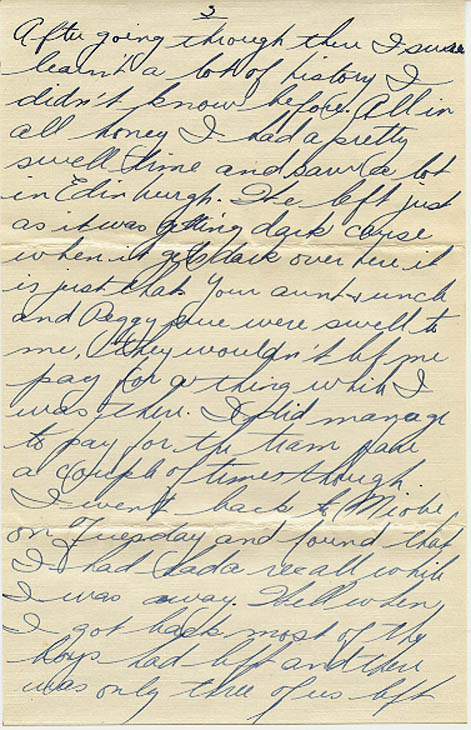 3
After going through there I sure
learn't a lot of history I
didn't know before. All in
all honey I had a pretty
swell time and saw a lot
in Edinburgh. We left just
as it was getting dark cause
when it gets dark over here it
is just that. Your aunt & uncle
and Peggy June were swell to
me, they wouldn't let me
pay for a thing while I
was there. I did manage
to pay for the tram fare
a couple of times though.
I went back to
on Tuesday and found that
I had had a recall while
I was away. Well when
I got back most of the
boys had left and there
was only three of us left